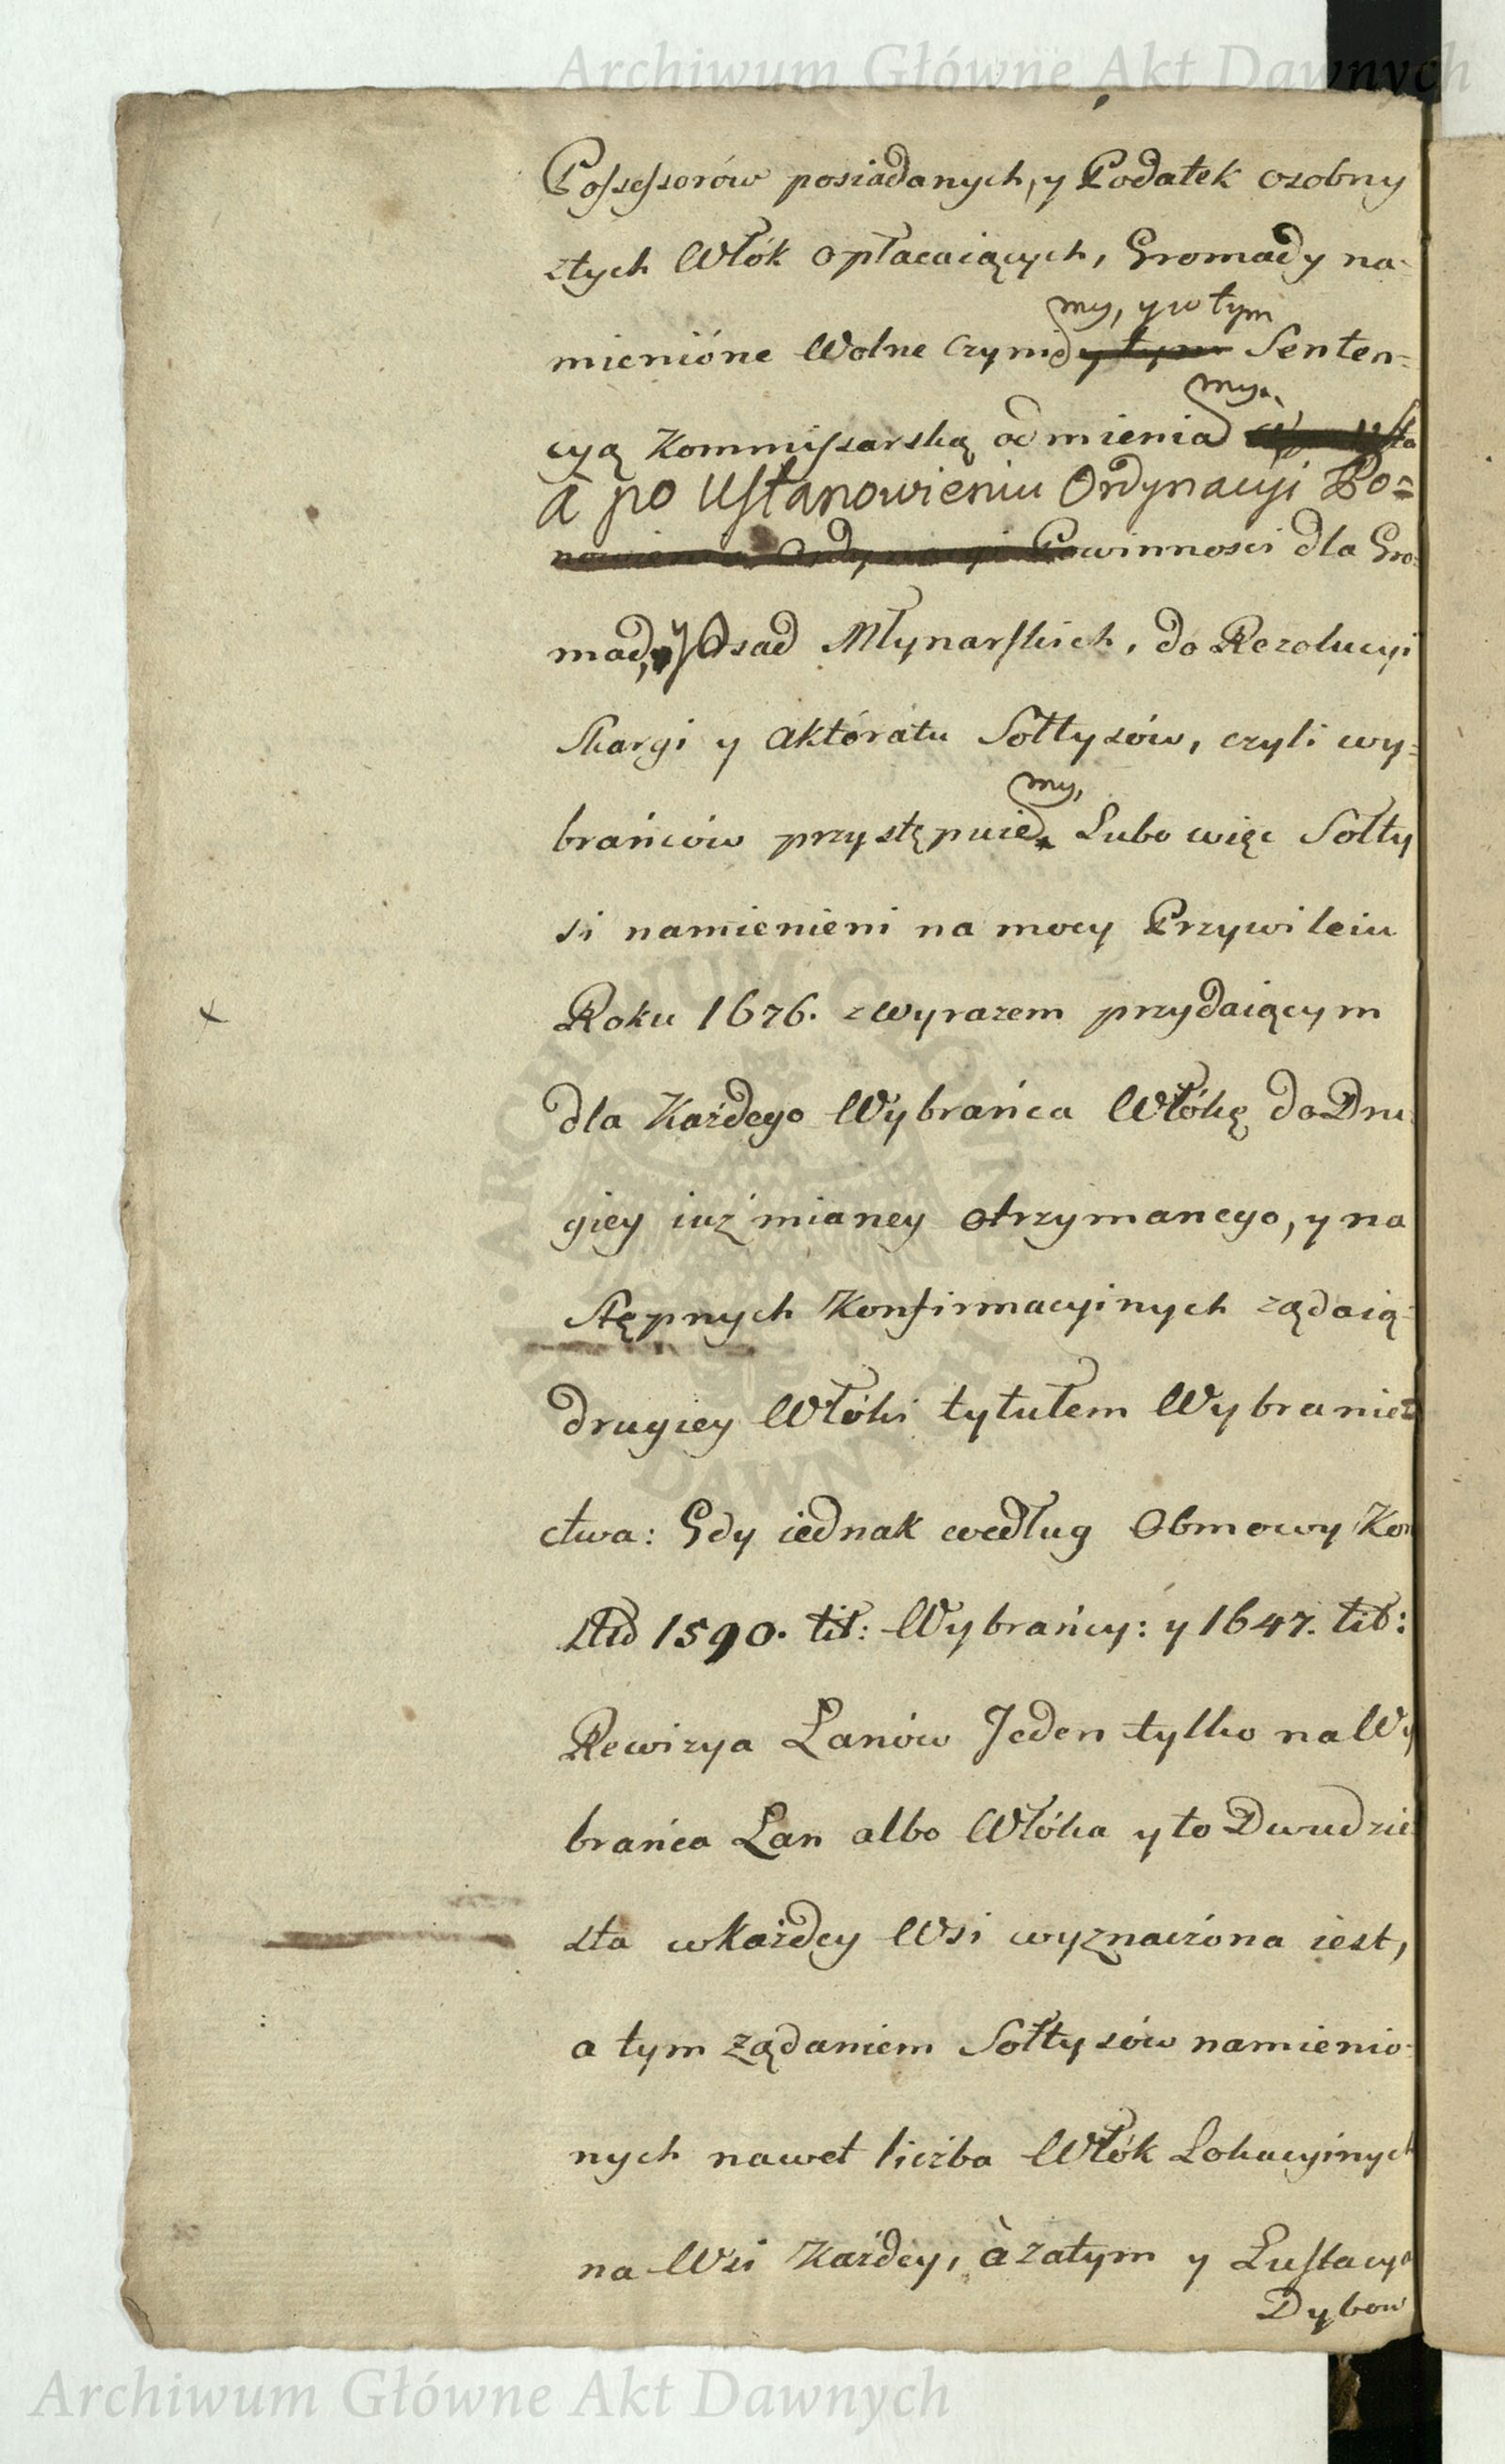 Archiwum Główne Akt Dawnych
Possessorów posiadanych, y Podatek osobny
ztych Włók opłacaiących, Gromady na-
my, y w tym
mienióne Wolne czynie y tym Senten=
my.
cyą Kommissarską odmienia
à po Ustanowieniu Ordynacyi Po=
nowienia Ordynacyi Powinnosci dla Gro-
mad, y Osad Młynarskich, do Rezolucyi
Skargi y Aktoratu Sołtysów, czyli wy=
my,
brańców przystępuie. Lubo więc Sołty
si namienieni na mocy Przywileiu
x
Roku 1676. z wyrazem przydaiącym
dla Każdego Wybrańca Włókę do Dru-
giey iuż mianey otrzymanego, y na
stępnych Konfirmacyinych ządaią-
drugiey Włóki tytułem Wybraniec
ctwa: Gdy iednak według Obmowy Kon
1590. tit: Wybrańcy: y 1647. tit:
Rewizya Łanów Jeden tylko na Wy
brańca Łan albo Włóka y to Dwudzie
sta w każdey Wsi wyznaczóna iest,
a tym ządaniem Sołtysów namienio-
nych nawet liczba Włók Lokacyinych
na Wsi Każdey, à zatym y Lustacya
Dybow
Archiwum Główne Akt Dawnych